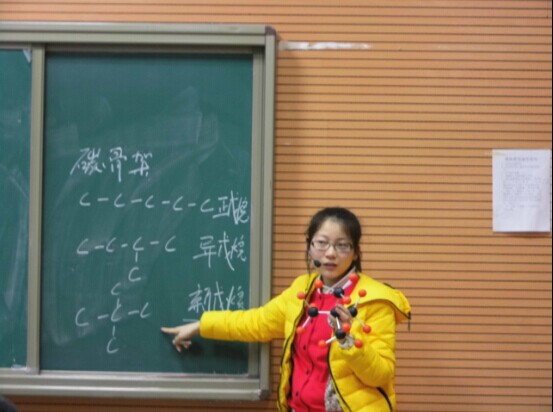 碳骨架
C-C-C-C-C 正戊烷
C-C-C-C 异戊烷
C
C
C-C-C 新戊烷
C